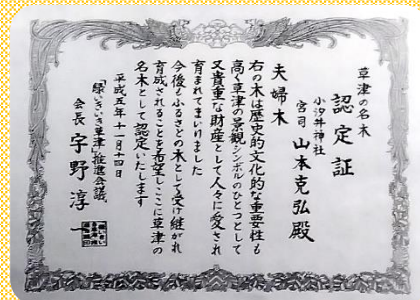 草津の名木
認定証
小汐井神社
宮司 山本克弘殿
夫婦木
右の木は歴史的文化的な重要性も
高く草津の景観シンボルのひとつとして
又貴重な財産として人々に愛され
育まれてまいりました
今後もふるさとの木として受け継がれ
育成されることを希望しここに草津の
名木として認定いたします
平成五年十一月十四日
「緑いきいき草津」推進会議
会長 宇野淳一